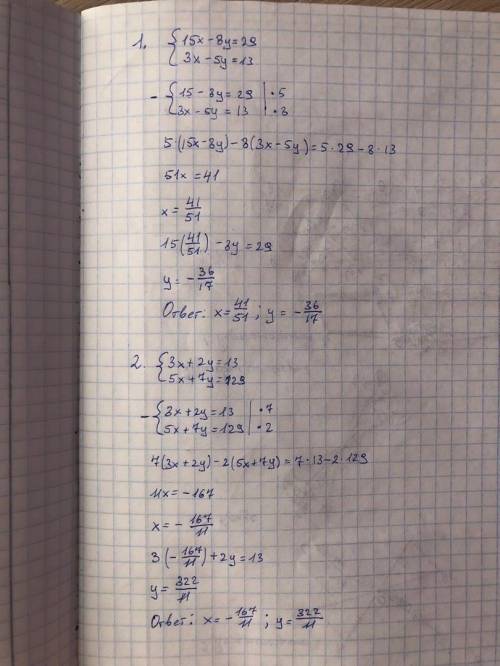 1. {15x-8y=29
{3x-5y=13
- {15-8y=29 | ·5
{3x-5y=13 | ·8
5·(15x-8y)-8(3x-5y)=5·29-8·13
51x=41
x=41/51
15(41/51)-8y=29
y=-36/17
Ответ: x=41/51; y=-36/17
2. {3x+2y=13
{5x+7y=129
- {3x+2y=13 | ·7
{5x+7y=129 | ·2
7(3x+2y)-2(5x+7y)=7·13-2·129
11x=-167
x=-167/11
3(-167/11)+2y=13
y=322/11
Ответ: x=-167/11; y=322/11